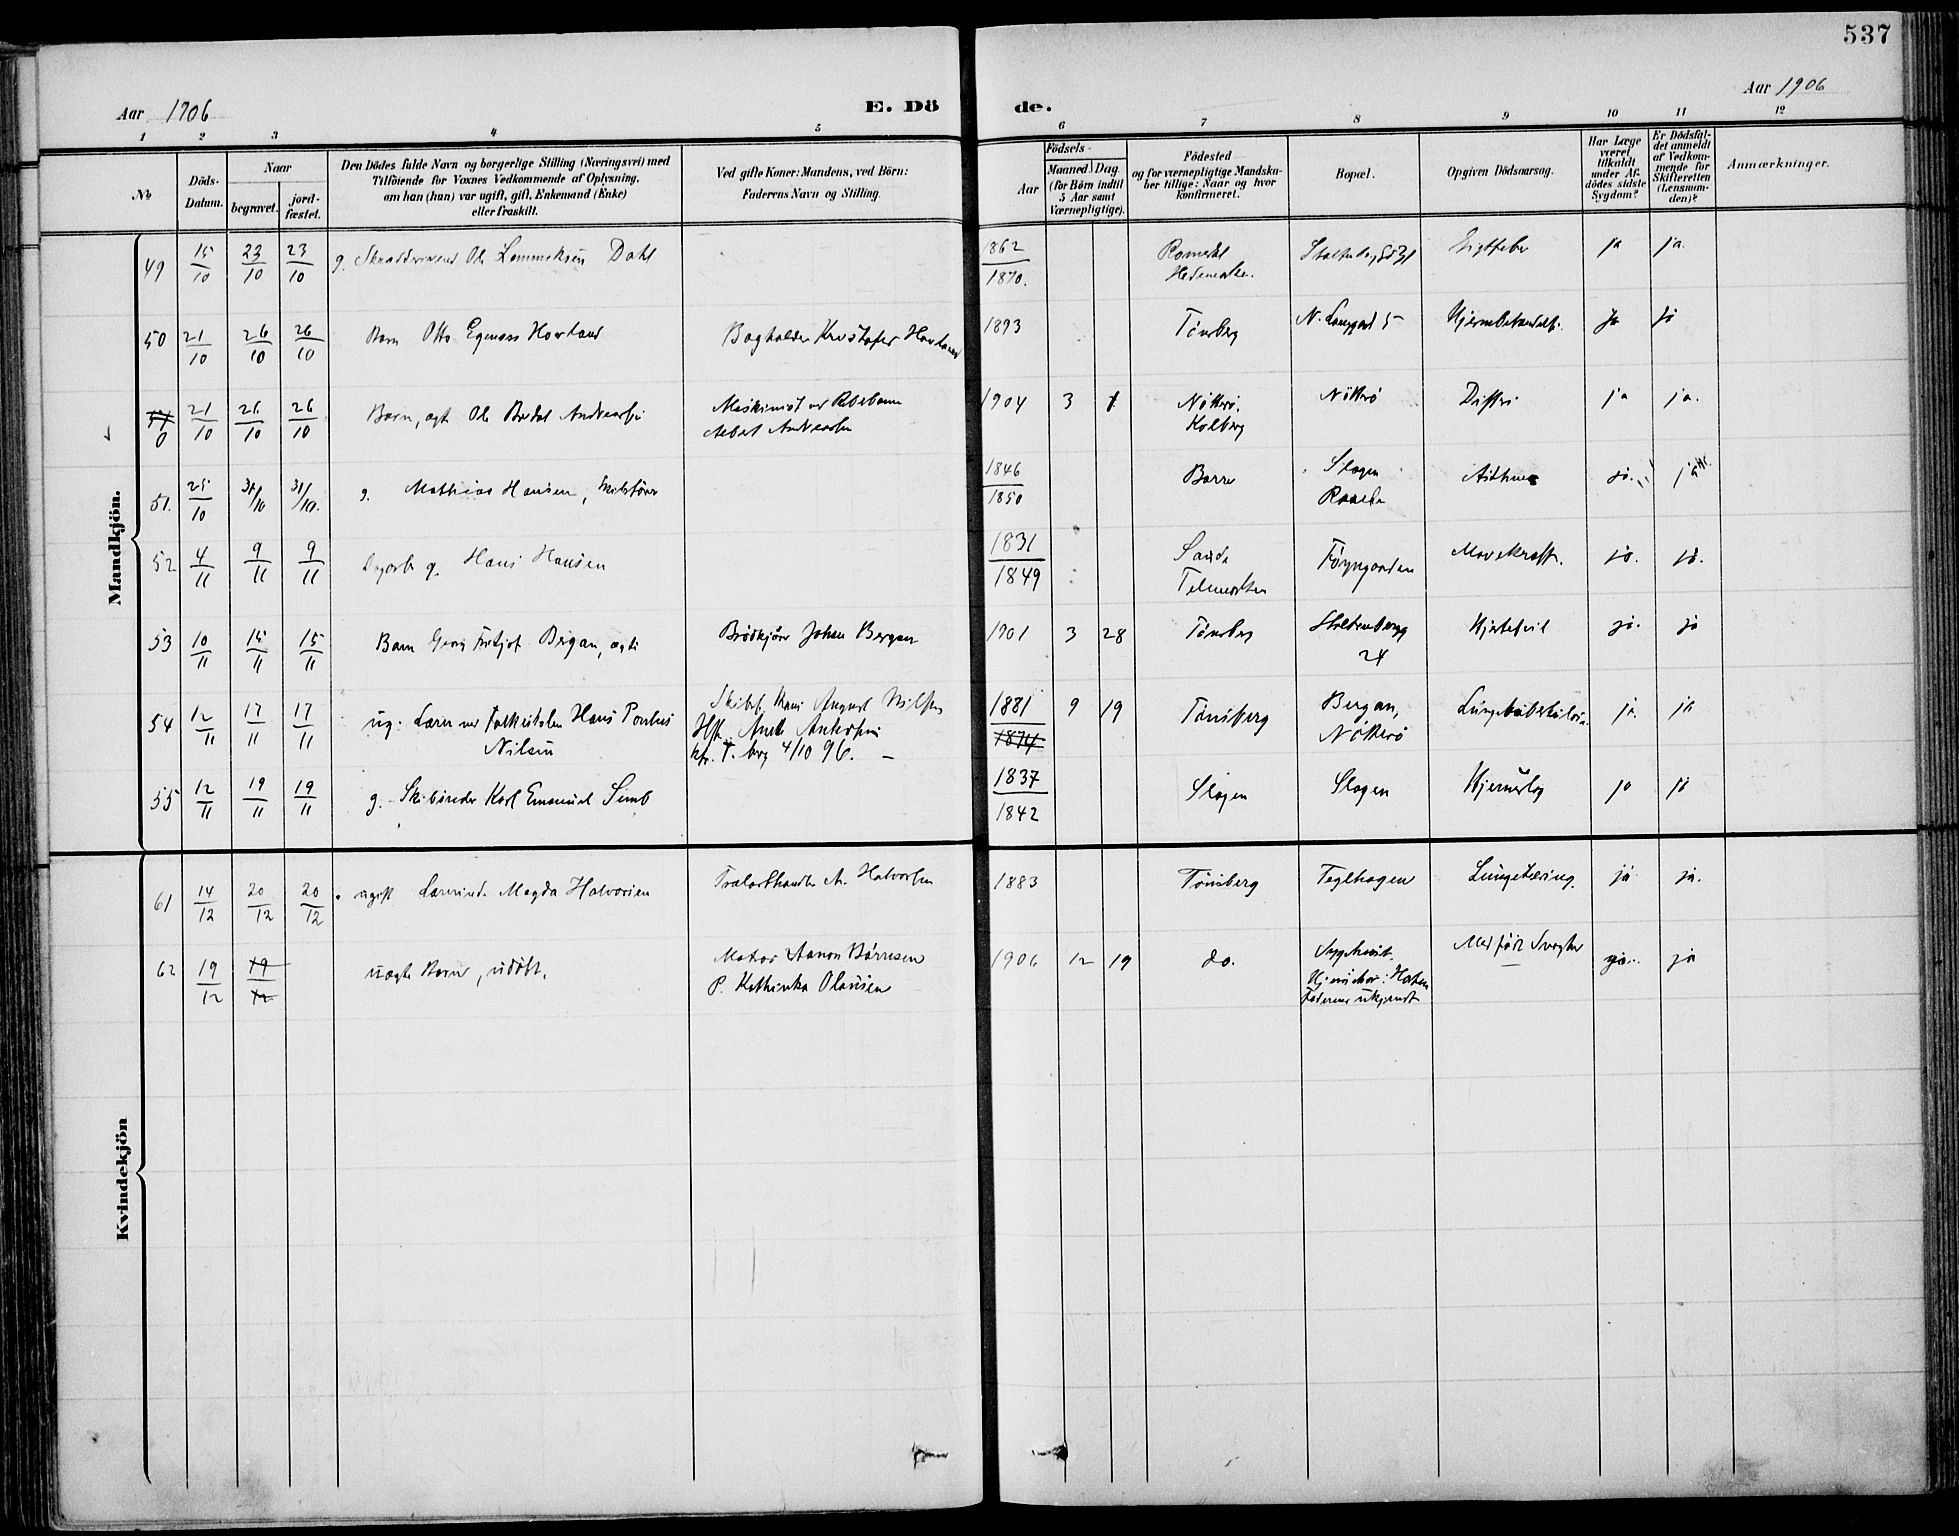 537
Aar 1906
E. Dö
de.
Aar 1906
1 2 3 4 5 6 7 8 9 10 11 12
No
Döds-
Datum.
Naar
begravet.
jord-
fæstet.
Den Dödes fulde Navn og borgerlige Stilling (Næringsvei) med
Tilföiende for Voxnes Vedkommende af Oplysning,
om han (hun) var ugift, gift, Enkemand (Enke)
eller fraskilt.
Ved gifte Koner: Mandens, ved Börn:
Faderens Navn og Stilling.
Födsels-
Aar
Maaned. Dag.
(for Börn indtil
5 Aar samt
Værnepligtige).
Födested
og for værnepligtige Mandska-
ber tillige: Naar og hvor
konfirmeret.
Bopæl.
Opgiven Dödsaarsag.
Har Læge
været
tilkaldt
under Af-
dödes sidste
Sygdom?
Er Dödsfal-
det anmeldt
af Vedkom-
mende for
Skifteretten
(Lensman-
den)?
Anmærkninger.
Mandkjön.
49 15/10 23/10 23/10 g. Ole Dahl 1862/1870. Romedal Hedemarken. Gigtfeber ja ja.
50 21/10 26/10 26/10 Barn Otto Hovland Bogholder Kristofer Hovland 1893 Tönsberg N. Langgad 5 ja ja
0 21/10 26/10 26/10 Barn, ægt Ole Andreassen Maskinist Albert Andreassen 1904 3 1 Nötterö, Kolberg Nötterö Difteri ja ja.
51. 25/10 31/10 31/10. g. Mathias Hansen, 1846/1850 Borre Slagen Asthma ja. ja
52 4/11 9/11 9/11 g. Hans Hansen 1831/1849 Telemarken Föyngaarden Mavekræft. ja. ja.
53 10/11 15/11 15/11 Barn Georg Fritjof Bergan, ægte Brödkjörer Johan Bergan 1901 3 28 Tönsberg Stoltenbergg 24 Hjertefeil ja. ja
54 12/11 17/11 17/11 ug. Lærer ved Folkeskolen Hans Nilsen
August Nilsen
T. berg 4/10 96. 1881 1874 9 19 Tönsberg Bergan, Nötterö ja. ja
55 12/11 19/11 19/11 g. Skibsreder Karl Emanuel Semb 1837/1842 Slagen Slagen Hjerneslag ja ja
Kvindekjön
61 14/12 20/12 20/12 ugift Lærerinde Magda Halvorsen Trælasthandler A. Halvorsen 1883 Tönsberg Teglhagen Lungetæring. ja ja.
62 19/12 19/12 uægte Barn, udöbt. Matros Aanon Börresen
P. Kathinka Olausen 1906 12 19 do. Faderens ukjendt Medfödt Svaghed ja. ja